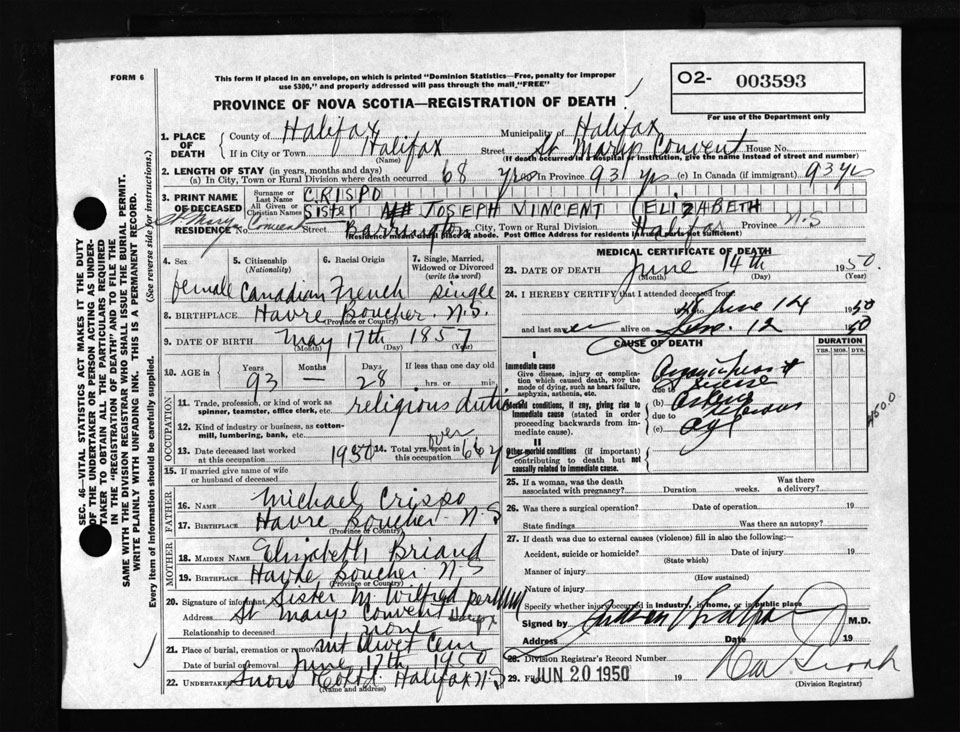 FORM 6
This form if placed in an envelope, on which is printed "Dominion Statistics—Free, penalty for improper
use $300," and properly addressed will pass through the mail "FREE"
O2- 003593
For use of the Department only
PROVINCE OF NOVA SCOTIA—REGISTRATION OF DEATH
1. PLACE OF DEATH
County of Halifax Municipality of Halifax
If in City or Town Halifax Street St Marys Convent House No.
(Name) (If death occurred in a hospital or institution, give the name instead of street and number)
2. LENGTH OF STAY (in years, months and days)
(a) In City, Town or Rural Division where death occurred 68 yrs In Province 93 yrs (c) In Canada (if immigrant) 93 yrs
3. PRINT NAME OF DECEASED
Surname or Last Name CRISPO
All Given or Christian Names SISTER JOSEPH VINCENT (ELIZABETH
RESIDENCE No. St Marys Convent Street Barrington City, Town or Rural Division Halifax Province N.S
(Residence means usual place of abode. Post Office Address for residents in rural parts not sufficient)
4. Sex female
5. Citizenship (Nationality) Canadian
6. Racial Origin French
7. Single, Married, Widowed or Divorced (write the word) single
8. BIRTHPLACE Havre Boucher N.S.
(Province or Country)
9. DATE OF BIRTH May 17th 1857
(Month) (Day) (Yr)
10. AGE in Years 93 Months — Days 28 If less than one day old, hrs. or min.
OCCUPATION
11. Trade, profession, or kind of work as spinner, teamster, office clerk, etc. religious duties
12. Kind of industry or business, as cotton-mill, lumbering, bank, etc.
13. Date deceased last worked at this occupation 1950
14. Total yrs. spent in this occupation over 66 yrs
15. If married give name of wife or husband of deceased
FATHER
16. Name Michael Crispo
17. Birthplace Havre Boucher N.S
(Province or Country)
MOTHER
18. Maiden Name Elizabeth Briand
19. Birthplace Havre Boucher N.S
(Province or Country)
20. Signature of informant Sister M. Wilfred per
Address St Marys Convent Hfx
Relationship to deceased none
21. Place of burial, cremation or removal Mt Olivet Cem
Date of burial or removal June 17th 1950
22. Undertaker Snow & Co Ltd. Halifax N.S
(Name and address)
MEDICAL CERTIFICATE OF DEATH
23. DATE OF DEATH June 14th 1950.
(Month) (Day) (Year)
24. I HEREBY CERTIFY that I attended deceased from
to June 14 1950
and last saw er alive on 12 1950
CAUSE OF DEATH
DURATION
YRS. MOS. DYS.
I
Immediate cause
Give disease, injury or complication which caused death, NOT the mode of dying, such as heart failure, asphyxia, asthenia, etc.
due to
(b)
Morbid conditions, if any, giving rise to immediate cause (stated in order proceeding backwards from immediate cause).
due to
(c) age
II
Other morbid conditions (if important) contributing to death but not causally related to immediate cause.
25. If a woman, was the death associated with pregnancy? Duration weeks. Was there a delivery?
26. Was there a surgical operation? Date of operation 19
State findings Was there an autopsy?
27. If death was due to external causes (violence) fill in also the following:—
Accident, suicide or homicide? Date of injury 19
(State which)
Manner of injury
(How sustained)
Nature of injury
Specify whether injury occurred in industry, in home, or in public place
Signed by M.D.
Address Date 19
28. Division Registrar's Record Number
29. Filed JUN 20 1950 19
(Division Registrar)
SEC. 46—VITAL STATISTICS ACT MAKES IT THE DUTY
OF THE UNDERTAKER OR PERSON ACTING AS UNDER-
TAKER TO OBTAIN ALL THE PARTICULARS REQUIRED
IN THE "REGISTRATION OF DEATH" AND TO FILE THE
SAME WITH THE DIVISION REGISTRAR WHO SHALL ISSUE THE BURIAL PERMIT.
WRITE PLAINLY WITH UNFADING INK. THIS IS A PERMANENT RECORD.
Every item of information should be carefully supplied. (See reverse side for instructions.)